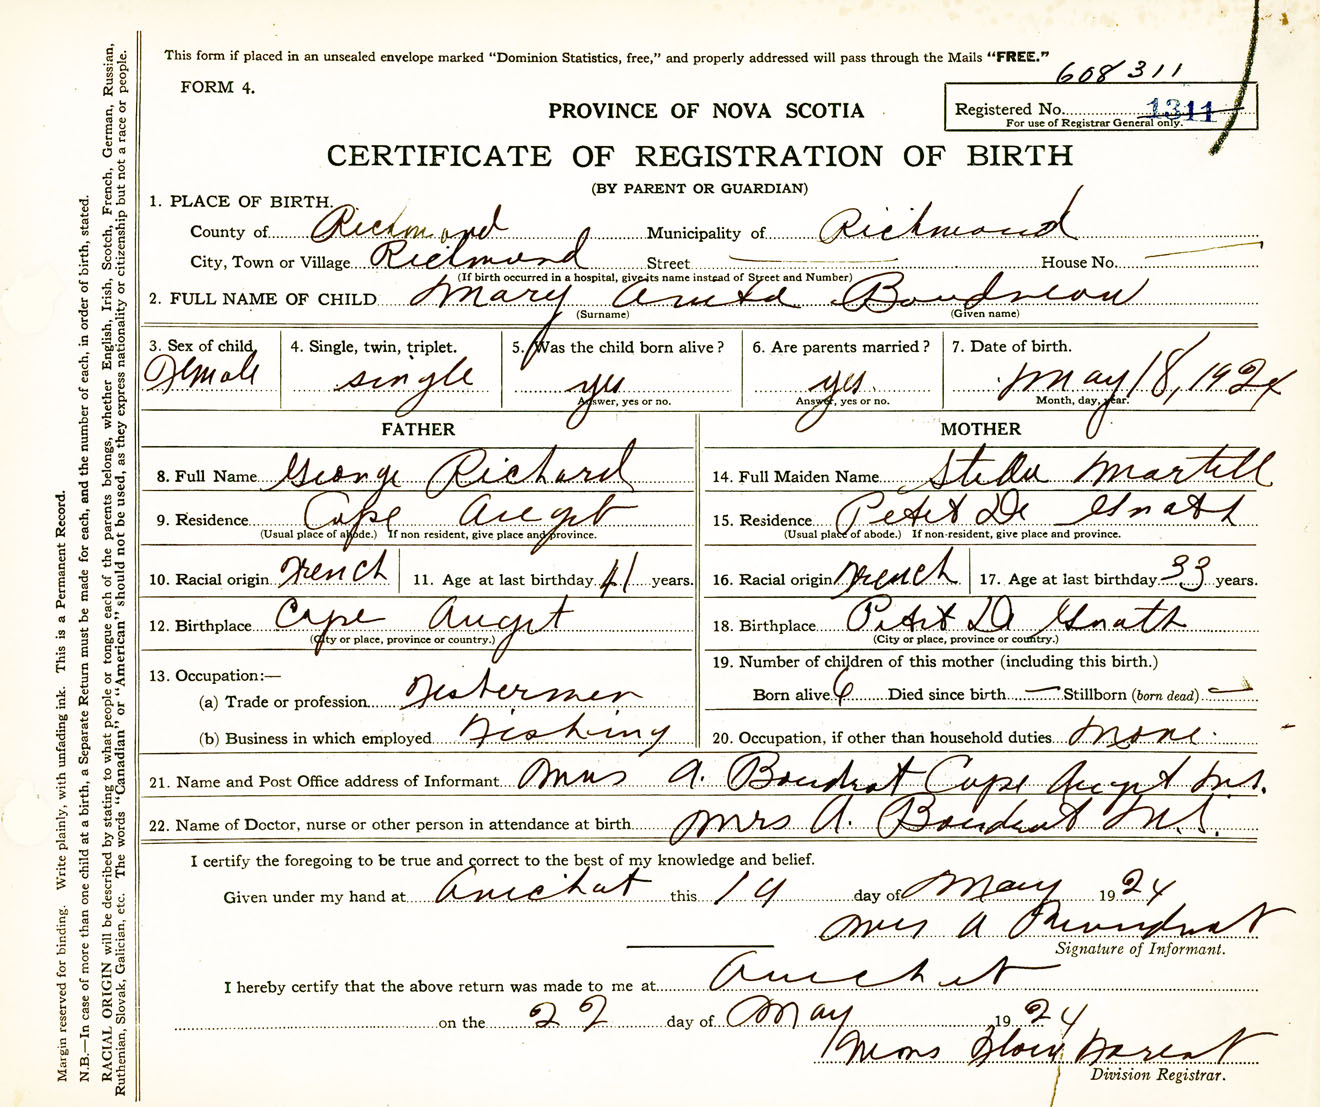 This form if placed in an unsealed envelope marked "Dominion Statistics, free," and properly addressed will pass through the Mails "FREE."
608311
FORM 4.
PROVINCE OF NOVA SCOTIA
Registered No. 1311
For use of Registrar General only.
CERTIFICATE OF REGISTRATION OF BIRTH
(BY PARENT OR GUARDIAN)
1. PLACE OF BIRTH.
County of Richmond Municipality of Richmond
City, Town or Village Richmond Street House No.
(If birth occurred in a hospital, give its name instead of Street and Number)
2. FULL NAME OF CHILD Mary Boudreau
(Surname) (Given name)
3. Sex of child. 4. Single, twin, triplet. 5. Was the child born alive? 6. Are parents married? 7. Date of birth.
Female single yes yes. May 18, 1924
Answer, yes or no. Answer, yes or no. Month, day, year.
FATHER MOTHER
8. Full Name George Richard 14. Full Maiden Name Stella Martell
9. Residence Cape Auget 15. Residence Petit De Grath
(Usual place of abode.) If non resident, give place and province. (Usual place of abode.) If non-resident, give place and province.
10. Racial origin French 11. Age at last birthday 41 years. 16. Racial origin French 17. Age at last birthday 33 years.
12. Birthplace Cape Auget 18. Birthplace Petit De Grath
(City or place, province or country.) (City or place, province or country.)
13. Occupation:— 19. Number of children of this mother (including this birth.)
(a) Trade or profession Fishermen Born alive 6 Died since birth — Stillborn (born dead) —
(b) Business in which employed Fishing 20. Occupation, if other than household duties none.
21. Name and Post Office address of Informant Mrs A. Boudrot Cape Auget N.S.
22. Name of Doctor, nurse or other person in attendance at birth Mrs A. Boudrot N.S.
I certify the foregoing to be true and correct to the best of my knowledge and belief.
Given under my hand at Arichat this 19 day of May 1924
Mrs A Boudrot
Signature of Informant.
I hereby certify that the above return was made to me at Arichat
on the 22 day of May 1924
Division Registrar.
Margin reserved for binding. Write plainly, with unfading ink. This is a Permanent Record.
N.B.—In case of more than one child at a birth, a Separate Return must be made for each, and the number of each, in order of birth, stated.
RACIAL ORIGIN will be described by stating to what people or tongue each of the parents belongs, whether English, Irish, Scotch, French, German, Russian,
Ruthenian, Slovak, Galician, etc. The words "Canadian" or "American" should not be used, as they express nationality or citizenship but not a race or people.